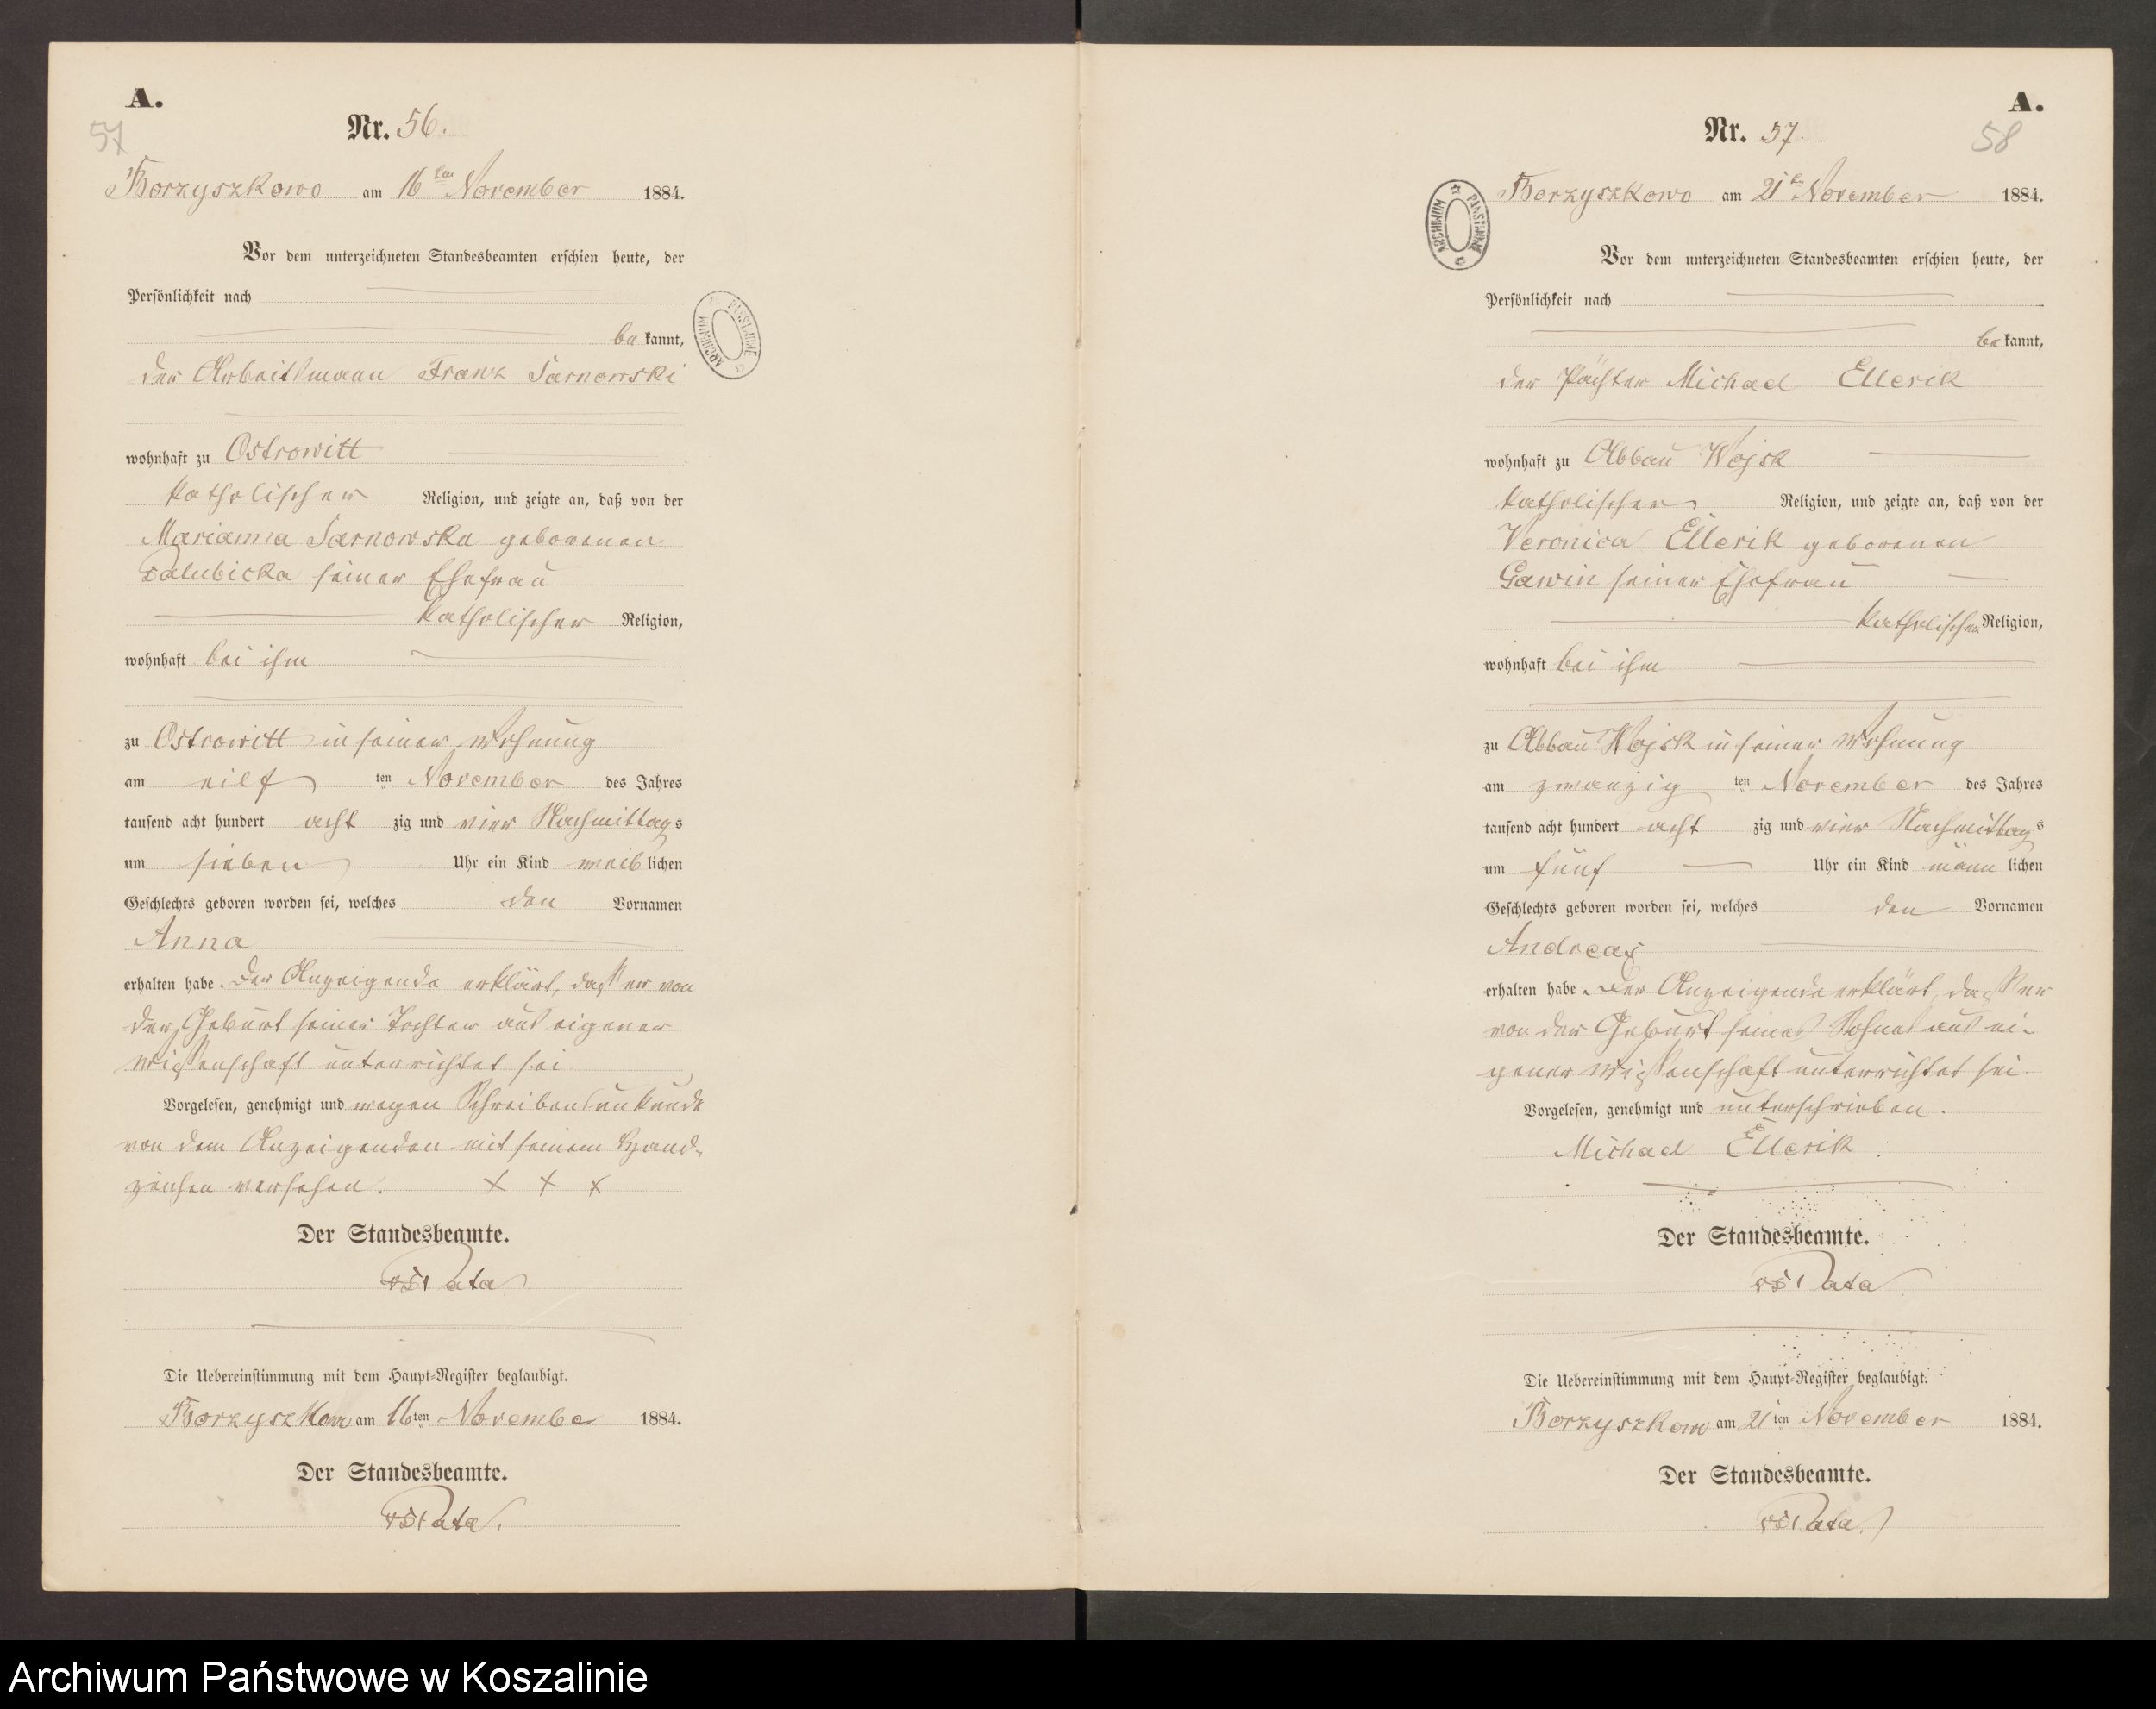 A.
57
Nr. 56.
Borzyszkowo am 16ten November 1884.
Vor dem unterzeichneten Standesbeamten erschien heute, der
Persönlichkeit nach
be kannt,
der Arbeitsmann Franz Sarnowski
wohnhaft zu Ostrowitt
katholischer Religion, und zeigte an, daß von der
Marianna Sarnowska geborenen
Zalubicka seiner Ehefrau
katholischer Religion,
wohnhaft bei ihm
zu Ostrowitt in seiner Wohnung
am eilf ten November des Jahres
tausend acht hundert acht zig und vier Nachmittags
um sieben Uhr ein Kind weib lichen
Geschlechts geboren worden sei, welches den Vornamen
Anna
erhalten habe. Der Anzeigende erklärt, daß er von
der Geburt seiner Tochter aus eigener
Wißenschaft unterrichtet sei
Vorgelesen, genehmigt und wegen Schreibensunkunde
von dem Anzeigenden mit seinem Hand-
zeichen versehen. X X X
Der Standesbeamte.
Pata
Die Uebereinstimmung mit dem Haupt-Register beglaubigt.
Borzyszkowo am 16ten November 1884.
Der Standesbeamte.
Pata.
ARCHIWUM PAŃSTWOWE
A.
58
Nr. 57.
Borzyszkowo am 21ten November 1884.
Vor dem unterzeichneten Standesbeamten erschien heute, der
Persönlichkeit nach
be kannt,
der Pächter Michael Ellerik
wohnhaft zu Abbau Wojsk
katholischer Religion, und zeigte an, daß von der
Veronica Ellerik geborenen
Gawin seiner Ehefrau
katholischer Religion,
wohnhaft bei ihm
zu Abbau Wojsk in seiner Wohnung
am zwanzig ten November des Jahres
tausend acht hundert acht zig und vier Nachmittags
um fünf Uhr ein Kind männ lichen
Geschlechts geboren worden sei, welches den Vornamen
Andreas
erhalten habe. Der Anzeigende erklärt, daß er
von der Geburt seines Sohnes aus ei-
gener Wißenschaft unterrichtet sei
Vorgelesen, genehmigt und unterschrieben.
Michael Ellerik
Der Standesbeamte.
Pata
Die Uebereinstimmung mit dem Haupt-Register beglaubigt.
Borzyszkowo am 21ten November 1884.
Der Standesbeamte.
Pata.
ARCHIWUM PAŃSTWOWE
Archiwum Państwowe w Koszalinie